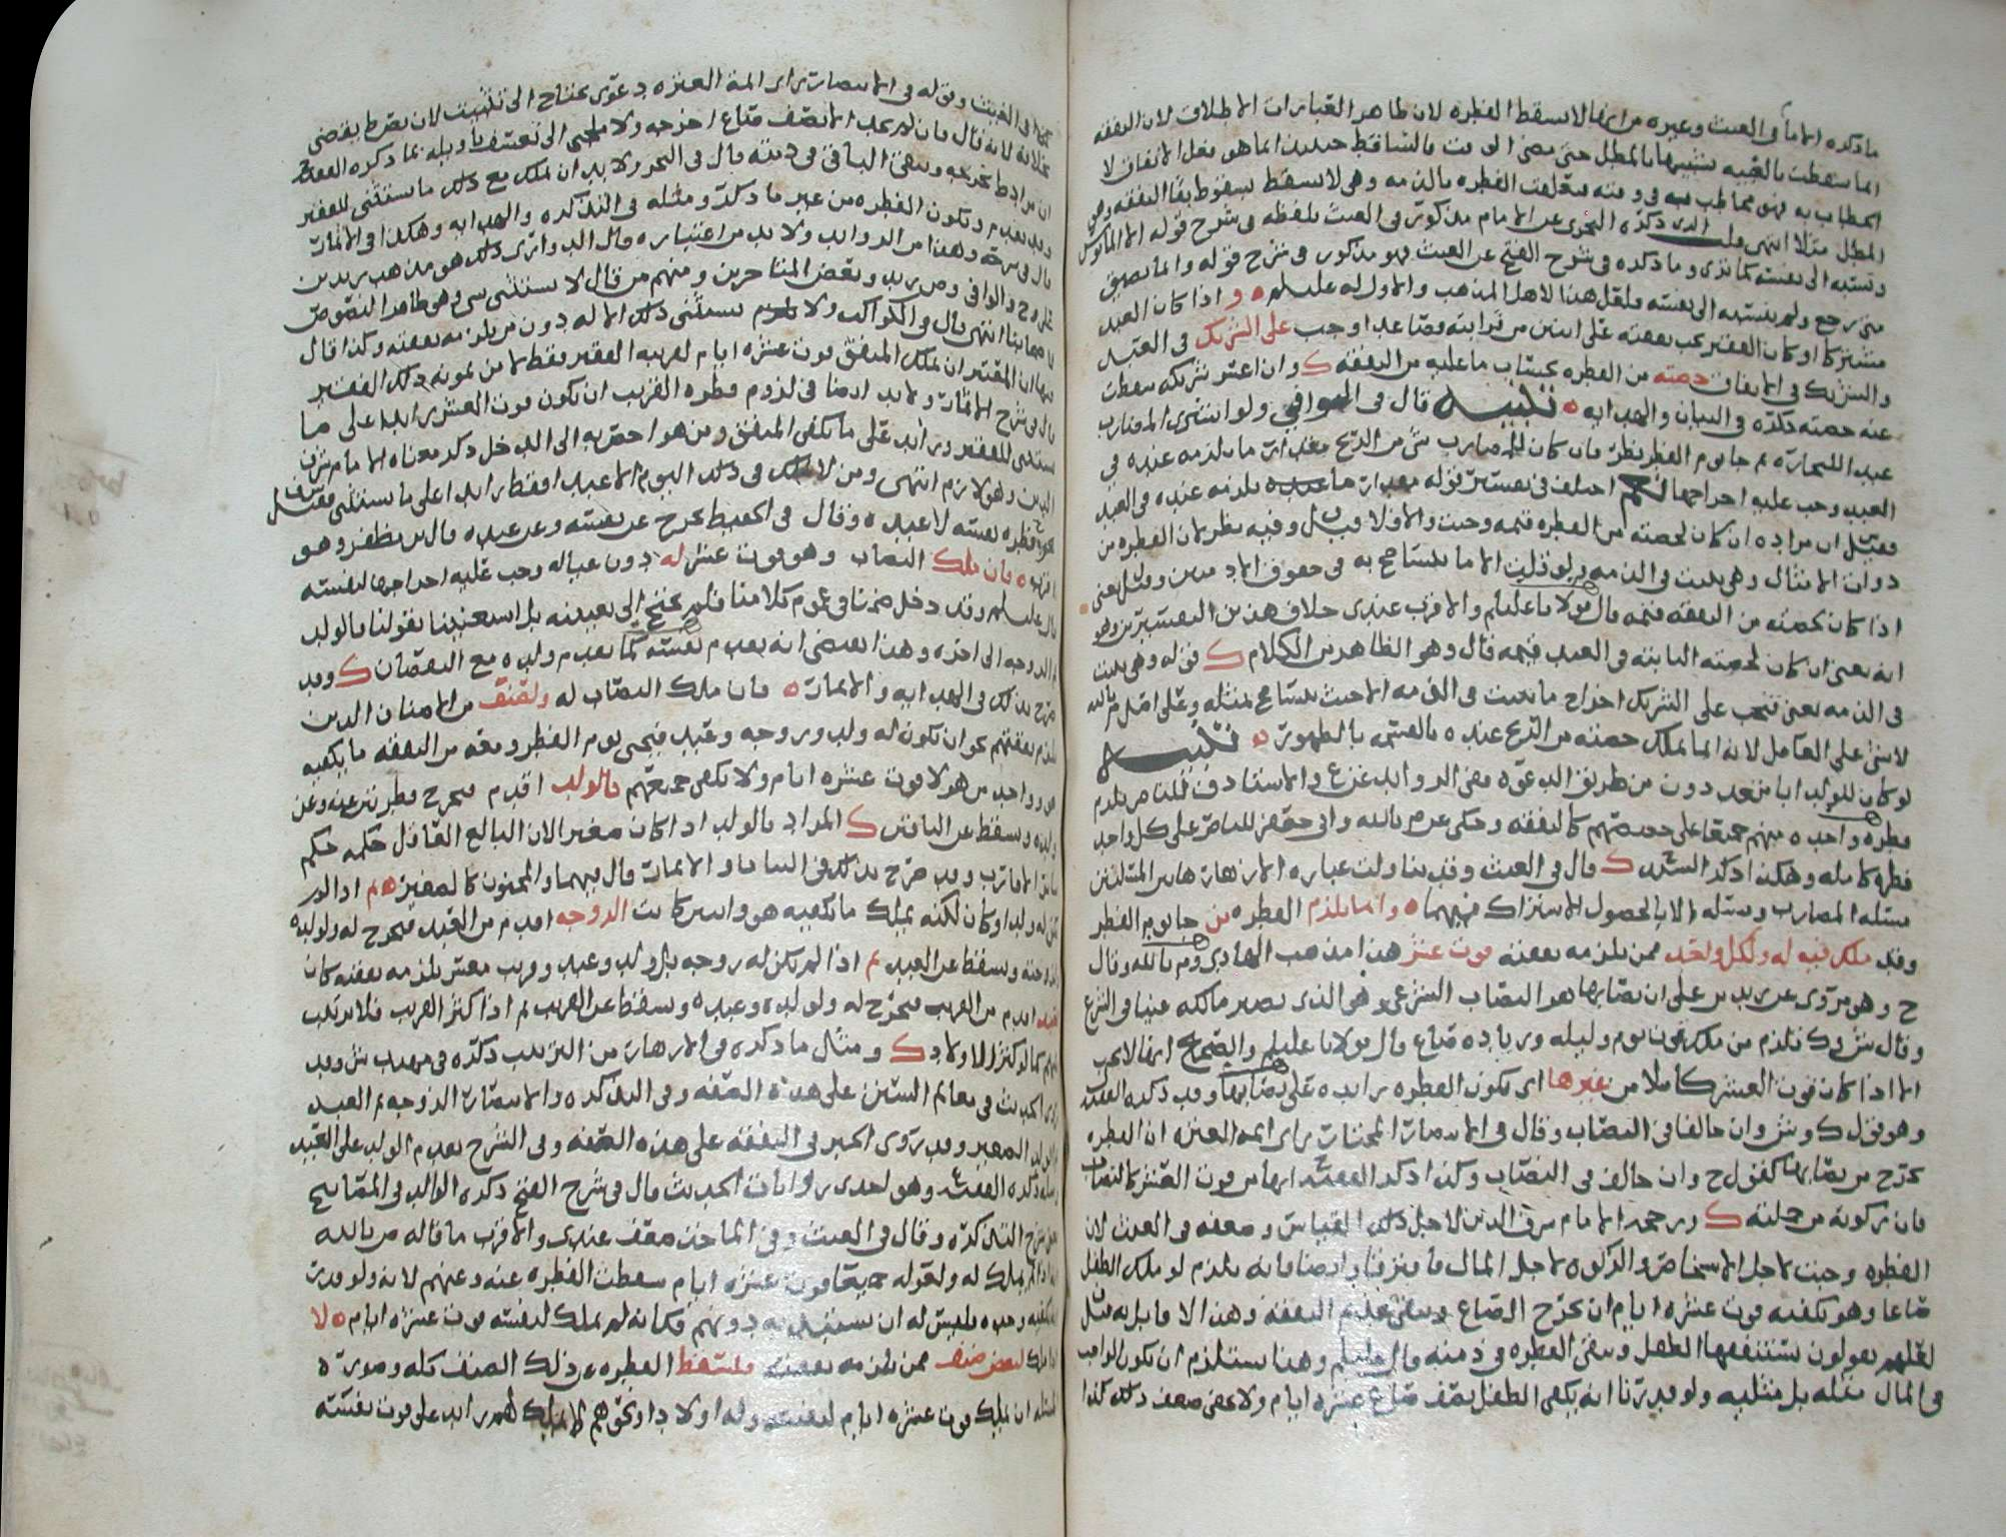 ما ذكره الامام في الغيث وغيره من انها لا تسقط الفطره لان ظاهر العبارات الاطلاق لان النفقه
انما سقطت بالغيبه تشبيها بالمطل حتى مضى الوقت فالساقط حينئذ انما هو فعل الانفاق لا
الخطاب به فهو مخاطب به في وقته فتعلقت الفطره بالذمه وهي لا تسقط بسقوط بقا النفقه وهي
المطل مثلا انتهى قلت الذي ذكره النجري عن الامام مذكور في الغيث بلفظه في شرح قوله الا المايوس
ونسبه الى نفسه كما ترى وما ذكره في شرح الفتح عن الغيث فهو مذكور في شرح قوله وانما تضيق
متى رجع ولم ينسبه الى نفسه فلعل هذا لاهل المذهب والاول له عليلم ه و اذا كان العبد
مشتركا او كان الفقير تجب نفقته على اثنين من قرابته فصاعدا وجب على الشريك في العبد
والشريك في الانفاق حصته من الفطره بحساب ما عليه من النفقه ك وان اعسر شريكه سقطت
عنه حصته ذكره في البيان والهدايه ه تنبيه قال في الوافي ولو اشترى المضارب
عبدا للتجارة ثم جا يوم الفطر نظر فان كان للمضارب شي من الربح مقدار ما يلزمه عنده في
العبد وجب عليه اخراجها نعم اختلف في تفسير قوله مقدار ما عنده يلزمه عنده في العبد
فقيل ان مراده ان كان لحصته من الفطره قيمه وجبت والا فلا وقيل وفيه نظر لان الفطره من
ذوات الامثال وهي تثبت في الذمه ولو قلت الا ما يتسامح به في حقوق الادميين وقيل يعني
اذا كان لحصته من النفقه قيمه قال مولانا عليلم والاقرب عندي خلاف هذين التفسيرين وهو
انه يعني ان كان لحصته الثابته في العبد قيمه قال وهو الظاهر من الكلام ك قوله وهي تثبت
في الذمه يعني فتجب على الشريك اخراج ما يثبت في الذمه الا حيث يتسامح بمثله وعلى اصل م بالله
لا شي على العامل لانه انما يملك حصته من الربح عنده بالقسمه بالظهور ه تنبيه
لو كان للولد ابا متعددون من طريق الدعوه ففي الزوائد عن ع والاستاذ ق قلنا ص يلزم
فطره واحده منهم جميعا على حصصهم كالنفقه وحكى عن م بالله وابي جعفر للناصر على كل واحد
فطره كامله وهكذا ذكر السيد ك قال في الغيث وقد تناولت عباره الازهار هاتين المسئلتين
مسئله المضارب ومسئله الابا لحصول الاشتراك فيهما ه وانما يلزم الفطره من جا يوم الفطر
وقد ملك فيه له ولكل واحد ممن تلزمه نفقته قوت عشر هذا مذهب الهادي وم بالله وقال
ح وهو مروى عن زيد بن علي ان نصابها هو النصاب الشرعي وهو الذي يصير مالكه غنيا في الشرع
وقال ش وك تلزم من ملك قوت يوم وليله وزياده صاع قال مولانا عليلم والصحيح انها لا تجب
الا اذا كان قوت العشر كاملا من غيرها اي تكون الفطره زايده على نصابها وقد ذكره الفقيه
وهو قول ك وش وان خالفا في النصاب وقال في الانتصار المختار راي ايمه العتره ان الفطره
تخرج من نصابها كقول ح وان خالف في النصاب وكذا ذكر الفقيه انها من قوت العشر كالنصاب
فان زكوته من جملته ك ورجحه الامام شرف الدين لاجل ذلك القياس وضعفه في الغيث لان
الفطره وجبت لاجل الاشخاص والزكوه لاجل المال فافترقا وايضا فانه يلزم لو ملك الطفل
صاعا وهو يكفيه قوت عشره ايام ان تخرج الصاع وتبقى عليه النفقه وهذا لا قايل به قيل
لعلهم يقولون يستنفقها الطفل وتبقى الفطره في ذمته قال عليلم وهذا يستلزم ان يكون الواجب
في المال مثله بل مثليه ولو قدرنا انه يكفي الطفل نصف صاع عشره ايام ولا يخفى ضعف ذلك كذا
في الغيث وقوله في الانتصار راي ايمه العتره دعوى تحتاج الى تثبيت لان يقضي
بخلافه لانه قال فان لم يجد الا نصف صاع اخرجه ولا ملجي الى تعسف تاويله بما ذكره الفقيه
ان مراده تخرجه ويبقى الباقي في ذمته قال في البحر ولا بد ان يملك مع ذلك ما يستثنى للفقير
وقد تقدم وتكون الفطره من غير ما ذكر ومثله في التذكره والهدايه وهكذا في الاثمار
قال في شرحه وهذا من الزوائد ولا بد من اعتباره قال الدواري ذلك هو مذهب زيد بن
علي وح والوافي وص زيد وبعض المتاخرين ومنهم من قال لا يستثنى شي وهو ظاهر النصوص
لاصحابنا انتهى قال في الكواكب ولا يستثنى ذلك الا له دون من يلزمه نفقته وكذا قال
فيها ان المعتبر ان يملك المنفق قوت عشره ايام لقريبه الفقير فقط لا من يمونه ذلك الفقير
قال في شرح الاثمار ولا بد ايضا في لزوم فطره القريب ان يكون قوت العشر زايدا على ما
يستثنى للفقير وزايد على ما يكفي المنفق ومن هو اخص به الى الدخل ذكر معناه الامام شرف
الدين وهو لازم انتهى ومن لا يملك في ذلك اليوم الا عبدا فقط زايدا على ما يستثنى فقيل
يخرج فطره نفسه لا عبده وقال في الحفيظ يخرج عن نفسه وعن عبده قال بن مظفر وهو
اقرب ه فان ملك النصاب وهو قوت عشر له دون عياله وجب عليه اخراجها لنفسه
قال عليلم وقد دخل هذا في عموم كلامنا فلم نحتج الى تعيينه بل استغنينا بقولنا فالولد
فالزوجه الى اخره وهذا يقتضي انه يقدم نفسه كما يقدم ولده مع النقصان ك وقد
صرح بذلك في الهدايه والاثمار ه فان ملك النصاب له ولصنف من الاصناف الذين
تلزم نفقتهم نحو ان يكون له ولد وزوجه وعبد فيجي يوم الفطر ومعه من النفقه ما يكفيه
هو وواحد من هولا قوت عشره ايام ولا يكفي جميعهم فالولد اقدم فيخرج فطرتين عنه وعن
ولده ويسقط عن الباقين ك المراد بالولد اذا كان صغيرا لان البالغ العاقل حكمه حكم
سائر الاقارب وقد صرح بذلك في البيان والاثمار قال فيهما والمجنون كالصغير ه ثم اذا لم
يكن له ولد او كان لكنه يملك ما يكفيه هو واسر كانت الزوجه اقدم من العبد فيخرج له ولولده
وزوجته ويسقط عن العبد ثم اذا لم تكن له زوجه بل ولد وعبد وقريب معسر يلزمه نفقته كان
العبد اقدم من القريب فيخرج له ولولده وعبده ويسقط عن القريب ثم اذا كثر القريب فلا ترتيب
بينهم كما لو كثر الاولاد ك ومثل ما ذكره في الازهار من الترتيب ذكره في مهذب ش وقد
روي الحديث في معالم السنن على هذه الصفه وفي التذكره والانتصار الزوجه ثم العبد
ثم الولد الصغير وقد روى الخبر في النفقه على هذه الصفه وفي الشرح يقدم الولد على العبد
ومثله ذكره الفقيه وهو احدى روايات الحديث قال في شرح الفتح ذكره الوالد في المصابيح
على شرح التذكره وقال في الغيث وفي الماخذ ضعف عندي والاقرب ما قاله ص بالله
انه اذا لم يملك له ولعوله جميعا قوت عشره ايام سقطت الفطره عنه وعنهم لانه ولو قدر
ما يكفيه وحده فليس له ان يستبد به دونهم فكانه لم يملك لنفسه قوت عشره ايام ه لا
اذا ملك لبعض صنف ممن تلزمه نفقته فتسقط الفطره عن ذلك الصنف كله وصورة
المسئله ان يملك قوت عشره ايام لنفسه وله اولاد او نحوهم لا يملك لهم زايد على قوت نفسه